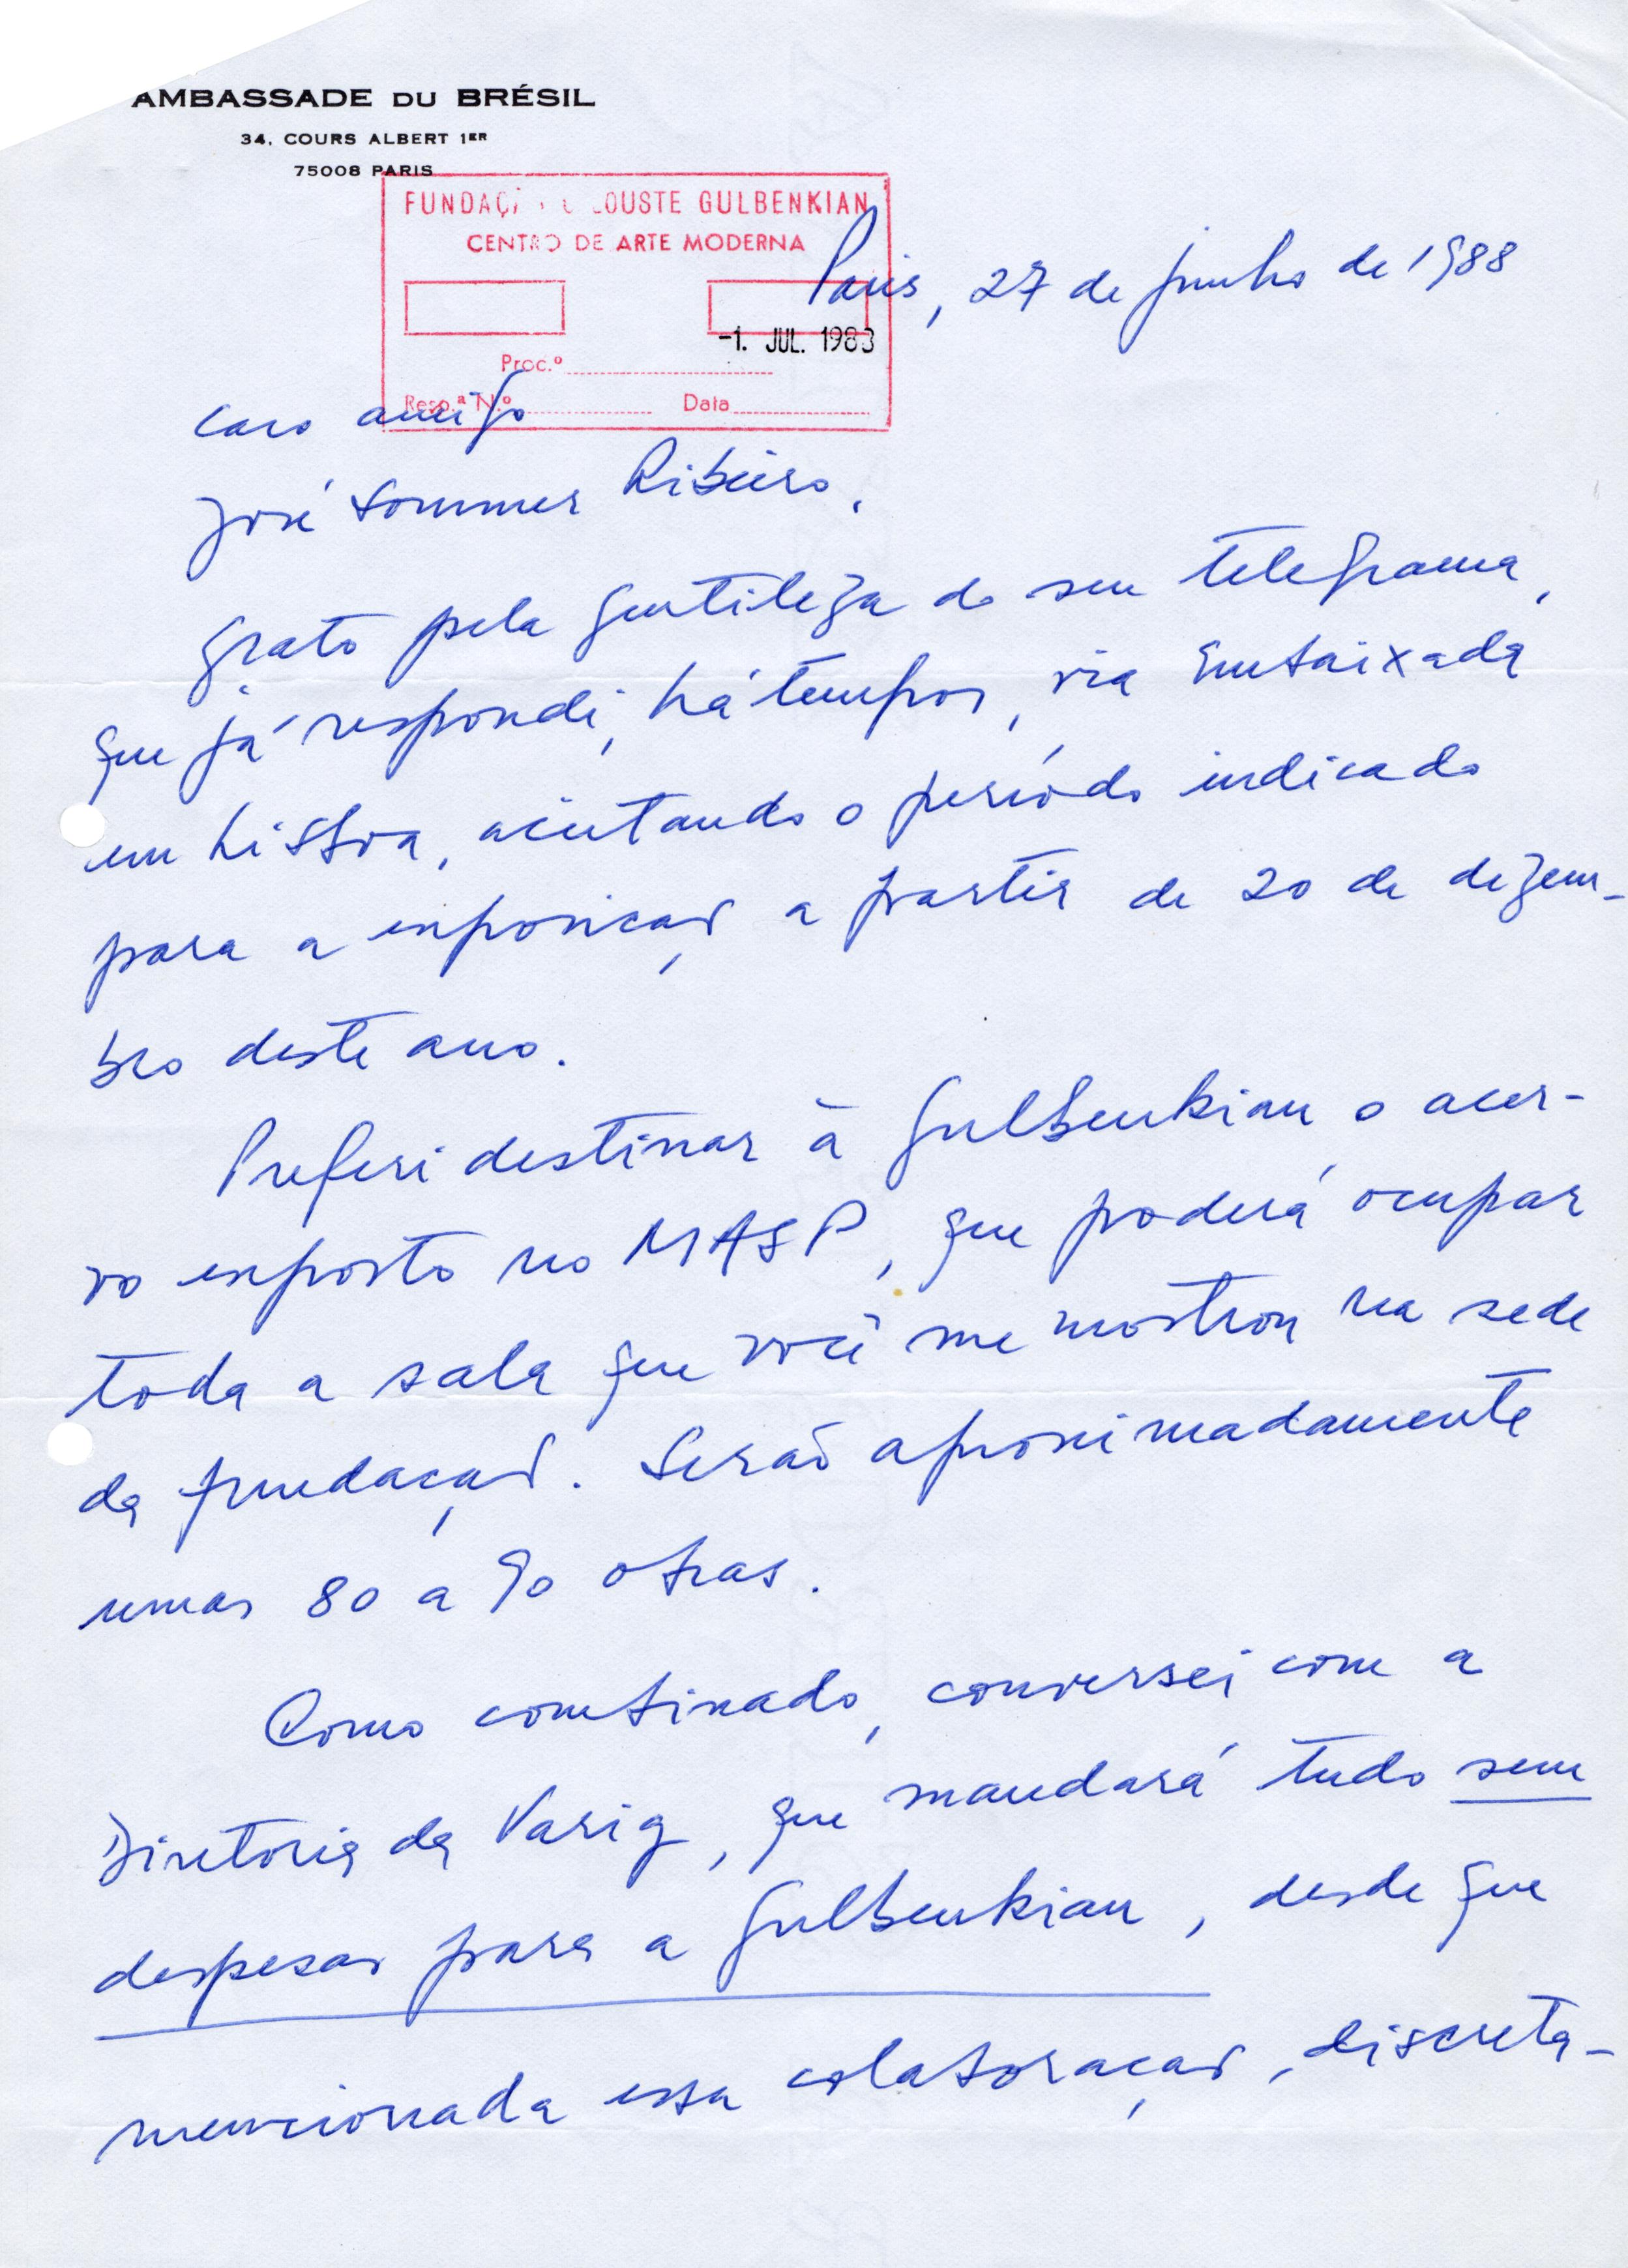 AMBASSADE DU BRÉSIL
34, COURS ALBERT 1ER
75008 PARIS
FUNDAÇ OUSTE GULBENKIAN
CENTRO DE ARTE MODERNA
Paris, 27 de junho de 1988
-1. JUL. 1988
Proc.º
Resp.ª N.º Data
Caro amigo
José Sommer Ribeiro,
grato pela gentileza do seu telegrama,
que já respondi, há tempos, via Embaixada
em Lisboa, aceitando o período indicado
para a exposição a partir de 20 de dezem-
bro deste ano.
Preferi destinar à Gulbenkian o acer-
vo exposto no MASP, que poderá ocupar
toda a sala que você me mostrou na sede
da fundação. Serão aproximadamente
umas 80 a 90 obras.
Como combinado, conversei com a
Diretoria da Varig, que mandará tudo sem
despesas para a Gulbenkian, desde que
mencionada essa colaboração, discreta-